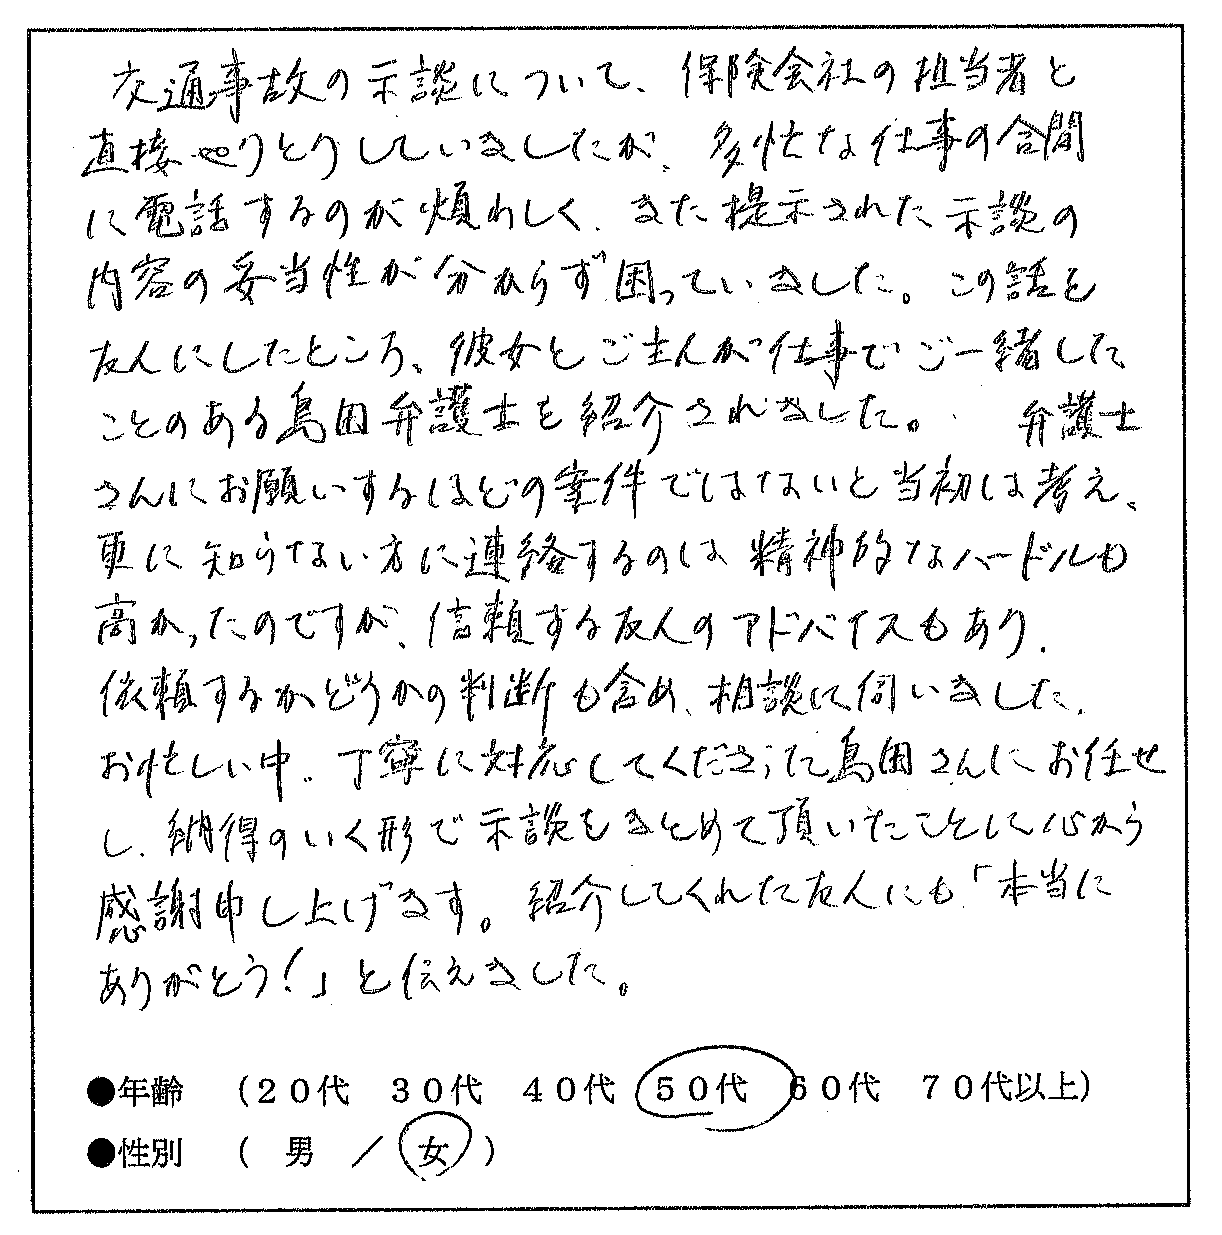 交通事故の示談について、保険会社の担当者と
直接やりとりしていましたが、多忙な仕事の合間
に電話するのが煩わしく、また提示された示談の
内容の妥当性が分からず困っていました。この話を
友人にしたところ、彼女とご主人が仕事でご一緒した
ことのある島田弁護士を紹介されました。 弁護士
さんにお願いするほどの案件ではないと当初は考え、
更に知らない方に連絡するのは精神的なハードルも
高かったのですが、信頼する友人のアドバイスもあり、
依頼するかどうかの判断も含め、相談に伺いました。
お忙しい中、丁寧に対応してくださった島田さんにお任せ
し、納得のいく形で示談をまとめて頂いたことに心から
感謝申し上げます。紹介してくれた友人にも「本当に
ありがとう!」と伝えました。
●年齢 (20代 30代 40代 50代 60代 70代以上)
●性別 ( 男 / 女 )